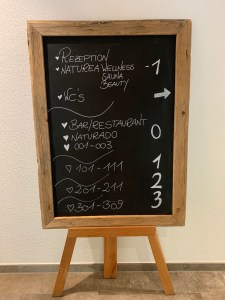 ♥ REZEPTION
♥ NATUREA WELLNESS -1
SAUNA
BEAUTY
♥ WC's →
♥ BAR/RESTAURANT
♥ NATURADO 0
♥ 001-003
♡ 101-111 1
♡ 201-211 2
♡ 301-309 3